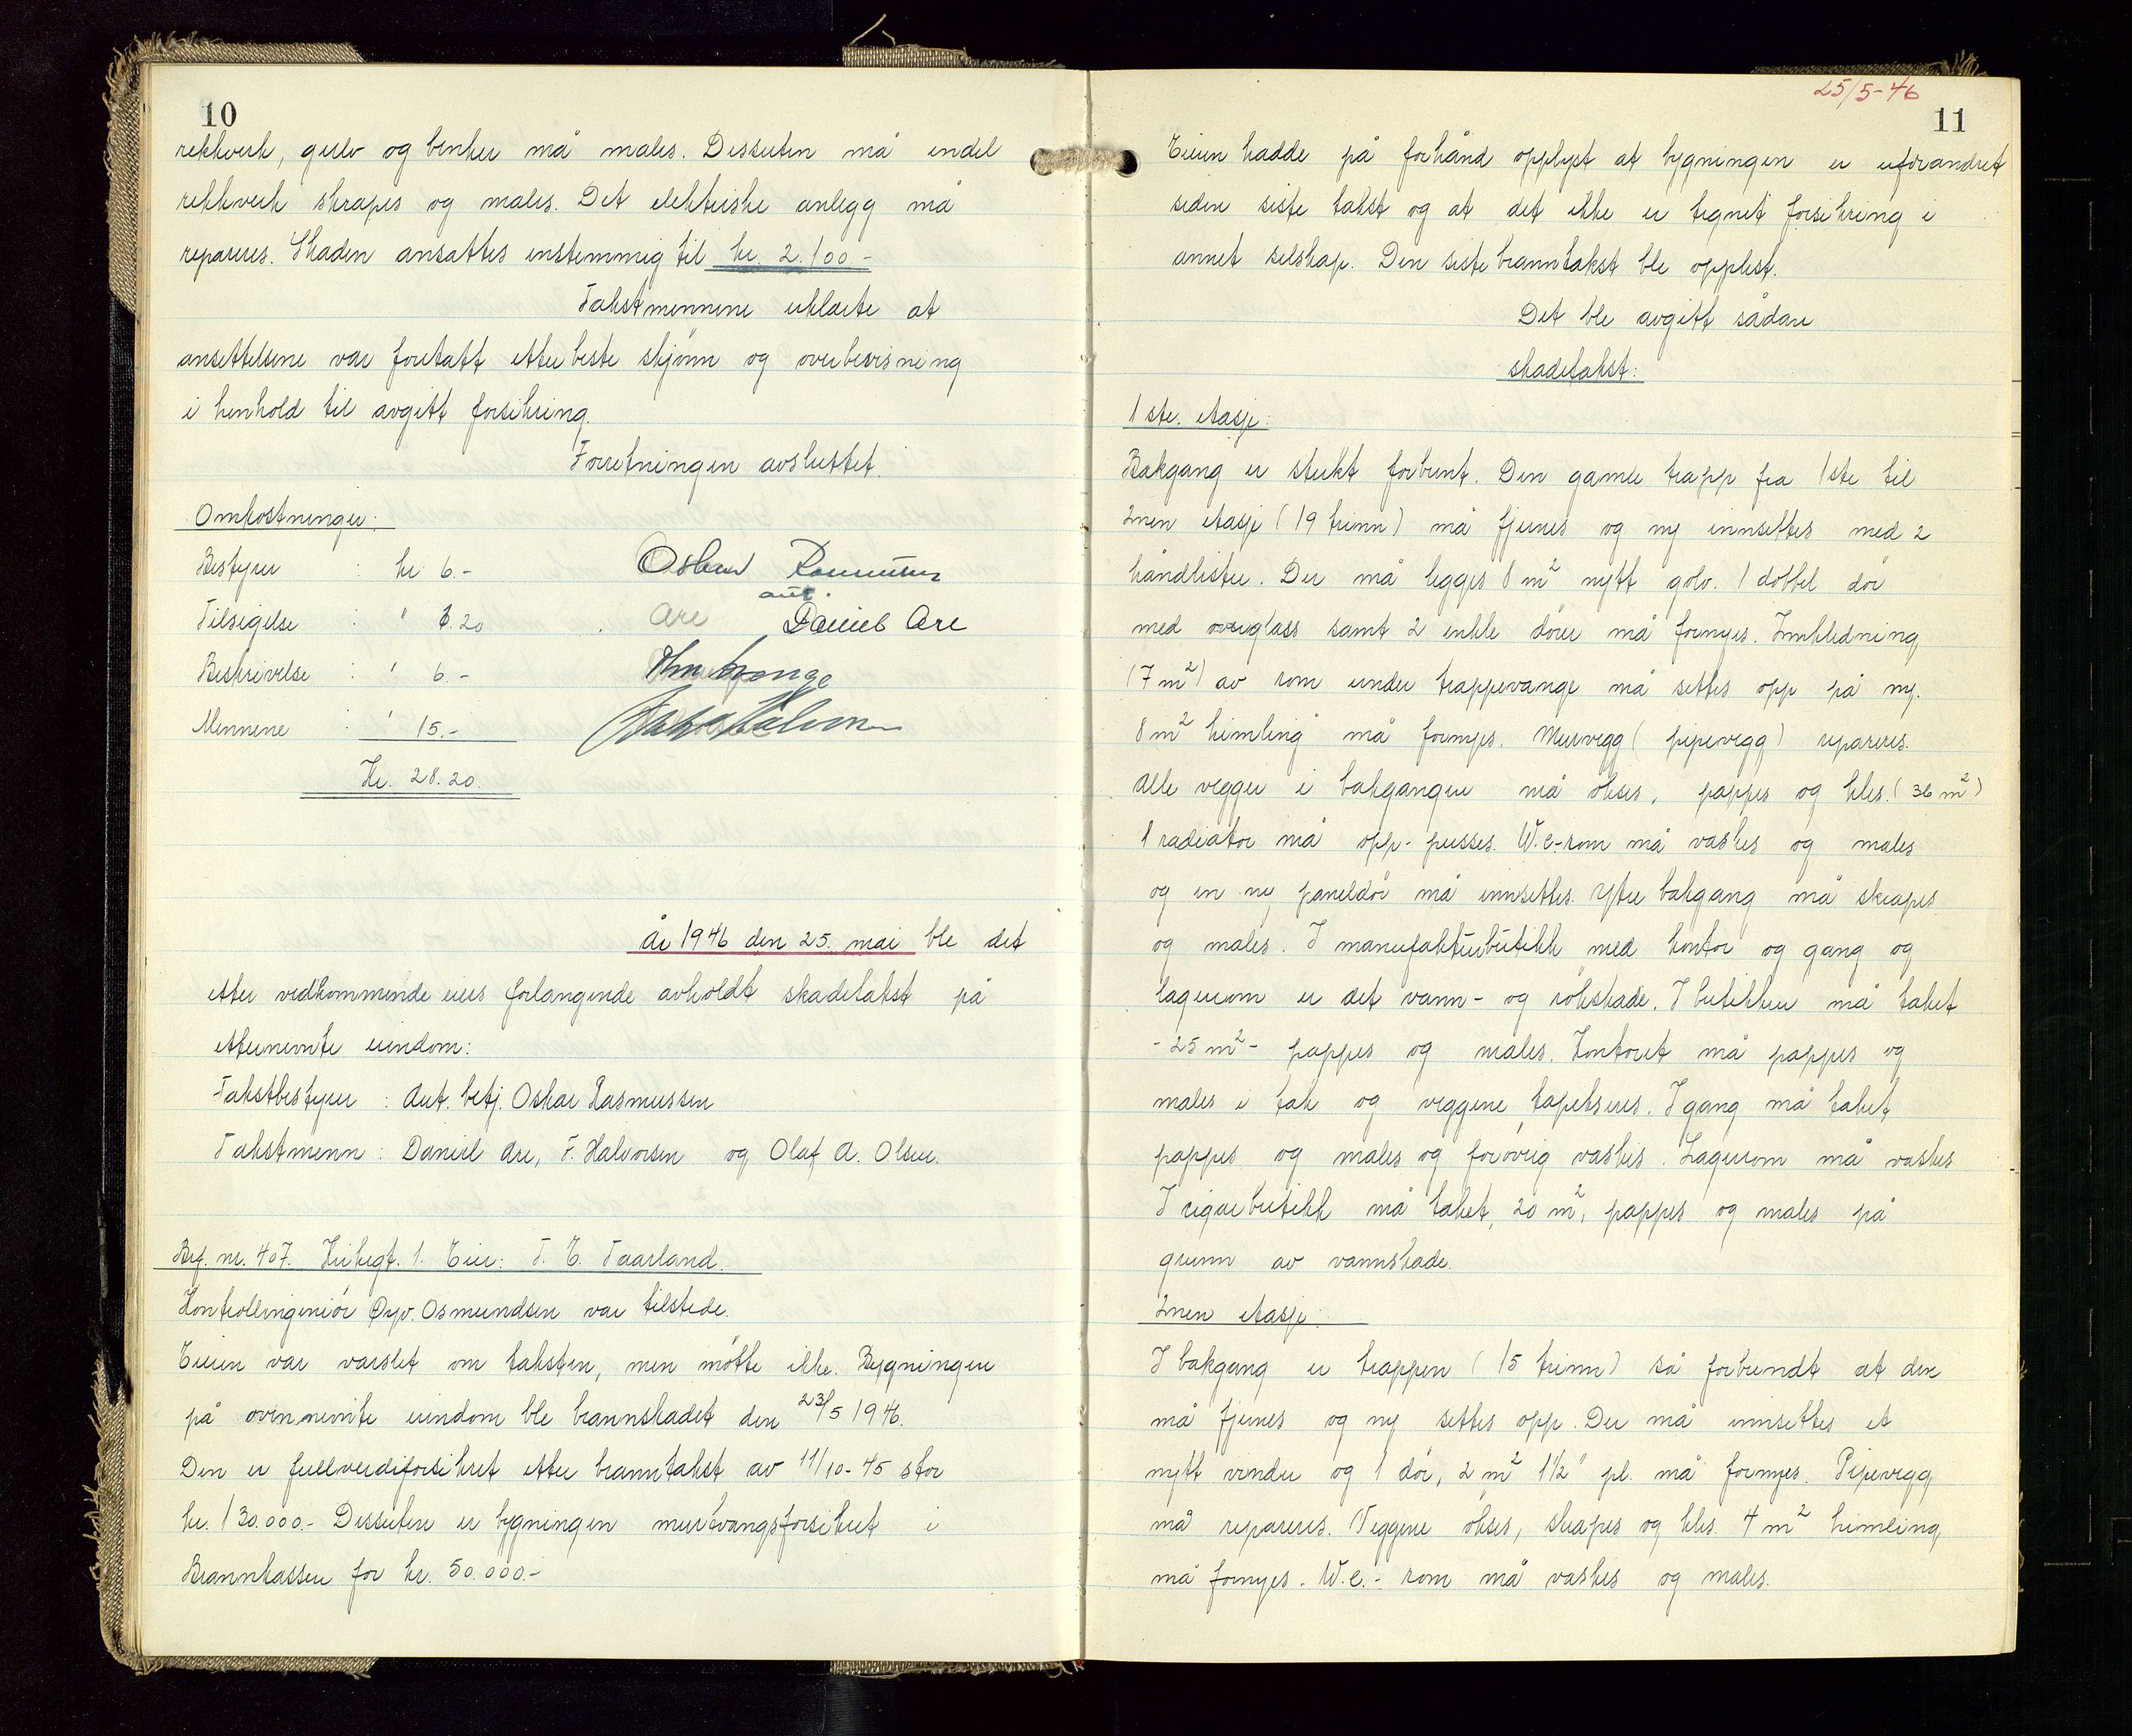 10
rekkverk, gulv og benker må males. Dessuten må endel
rekkverk skrapes og males. Det elektriske anlegg må
repareres. Skaden ansattes enstemmig til kr. 2.100.-
Takstmennene erklærte at
ansettelsene var foretatt etter beste skjønn og overbevisning
i henhold til avgitt forsikring.
Forretningen avsluttet.
Omkostninger:
Bestyrer : kr 6.- Oskar Rasmussen
aut.
Tilsigelse : " 1.20 Are Daniel Are
Beskrivelse : " 6.-
Mennene : " 15.-
Kr. 28.20.
År 1946 den 25. mai ble det
etter vedkommende eiers forlangende avholdt skadetakst på
etternevnte eiendom:
Takstbestyrer : Aut. betj. Oskar Rasmussen
Takstmenn : Daniel Are, F. Halvorsen og Olaf A. Olsen.
Brf. nr. 407. Kirkegt. 1. Eier: T. E. Taarland.
Kontrollingeniør Øyv. Osmundsen var tilstede.
Eieren var varslet om taksten, men møtte ikke. Bygningen
på ovennevnte eiendom ble brannskadet den 23/5 1946.
Den er fullverdiforsikret etter branntakst av 11/10-45 stor
kr. 130.000.- Dessuten er bygningen murtvangsforsikret i
Brannkassen for kr. 50.000.-
25/5-46
11
Eieren hadde på forhånd opplyst at bygningen er uforandret
siden siste takst og at det ikke er tegnet forsikring i
annet selskap. Den siste branntakst ble opplest.
Det ble avgitt sådan
skadetakst:
1ste. etasje:
Bakgang er sterkt forbrent. Den gamle trapp fra 1ste til
2nen etasje (19 trinn) må fjernes og ny innsettes med 2
håndlister. Der må legges 8 m² nytt golv. 1 dobbel dør
med overglass samt 2 enkle dører må fornyes. Innkledning
(7 m²) av rom under trappevange må settes opp på ny.
8 m² himling må fornyes. Murvegg (pipevegg) repareres.
Alle vegger i bakgangen må økses, pappes og kles. (36 m²)
1 radiator må opp-pusses. W.c-rom må vaskes og males
og en ny paneldør må innsettes. Ytre bakgang må skrapes
og males. I manufakturbutikk med kontor og gang og
lagerrom er det vann- og røkskade. I butikken må taket
- 25 m² - pappes og males. Kontoret må pappes og
males i tak og veggene tapetseres. I gang må taket
pappes og males og forøvrig vaskes. Lagerrom må vaskes
I cigarbutikk må taket, 20 m², pappes og males på
grunn av vannskade.
2nen etasje:
I bakgang er trappen (15 trinn) så forbrendt at den
må fjernes og ny settes opp. Der må innsettes et
nytt vindu og 1 dør, 2 m² 1½" pl. må fornyes. Pipevegg
må repareres. Veggene økses, skrapes og kles. 4 m² himling
må fornyes. W.c.- rom må vaskes og males.